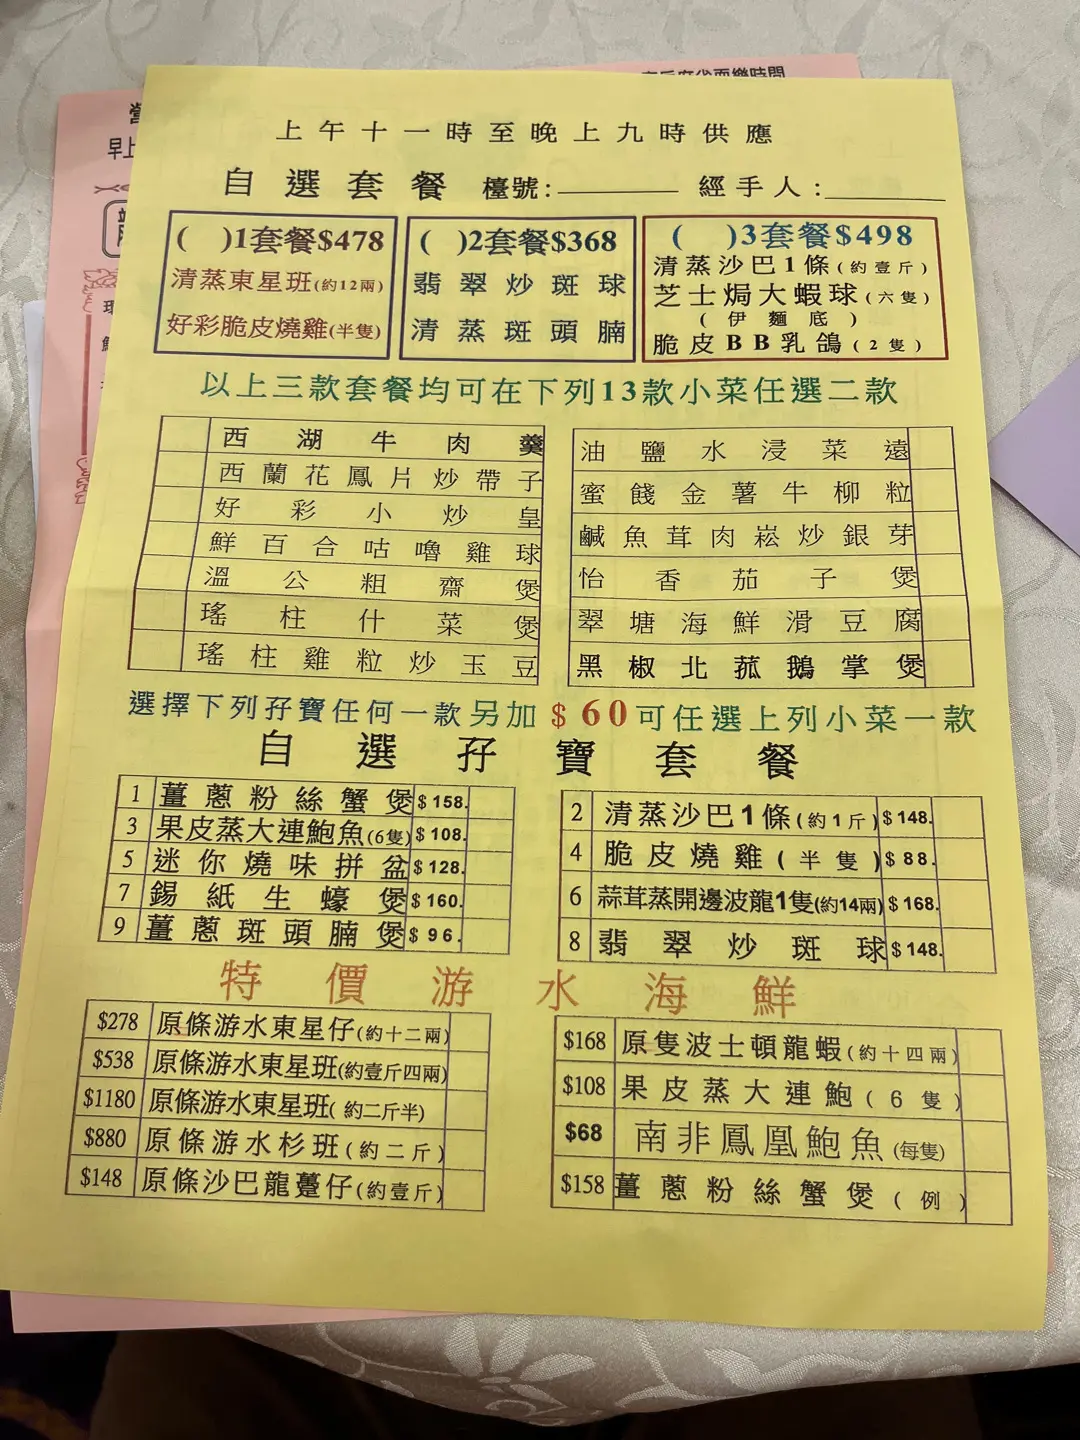 早上
上午十一時至晚上九時供應
自選套餐 檯號:________ 經手人:________
( )1套餐$478
清蒸東星班(約12兩)
好彩脆皮燒雞(半隻)
( )2套餐$368
翡翠炒斑球
清蒸斑頭腩
( )3套餐$498
清蒸沙巴1條(約壹斤)
芝士焗大蝦球(六隻)
(伊麵底)
脆皮BB乳鴿(2隻)
以上三款套餐均可在下列13款小菜任選二款
西湖牛肉羹
西蘭花鳳片炒帶子
好彩小炒皇
鮮百合咕嚕雞球
溫公粗齋煲
瑤柱什菜煲
瑤柱雞粒炒玉豆
油鹽水浸菜遠
蜜餞金薯牛柳粒
鹹魚茸肉崧炒銀芽
怡香茄子煲
翠塘海鮮滑豆腐
黑椒北菰鵝掌煲
選擇下列孖寶任何一款另加$60可任選上列小菜一款
自選孖寶套餐
1 薑蔥粉絲蟹煲 $158.
3 果皮蒸大連鮑魚(6隻) $108.
5 迷你燒味拼盆 $128.
7 錫紙生蠔煲 $160.
9 薑蔥斑頭腩煲 $96.
2 清蒸沙巴1條(約1斤) $148.
4 脆皮燒雞(半隻) $88.
6 蒜茸蒸開邊波龍1隻(約14兩) $168.
8 翡翠炒斑球 $148.
特價游水海鮮
$278 原條游水東星仔(約十二兩)
$538 原條游水東星班(約壹斤四兩)
$1180 原條游水東星班(約二斤半)
$880 原條游水杉班(約二斤)
$148 原條沙巴龍躉仔(約壹斤)
$168 原隻波士頓龍蝦(約十四兩)
$108 果皮蒸大連鮑(6隻)
$68 南非鳳凰鮑魚(每隻)
$158 薑蔥粉絲蟹煲(例)